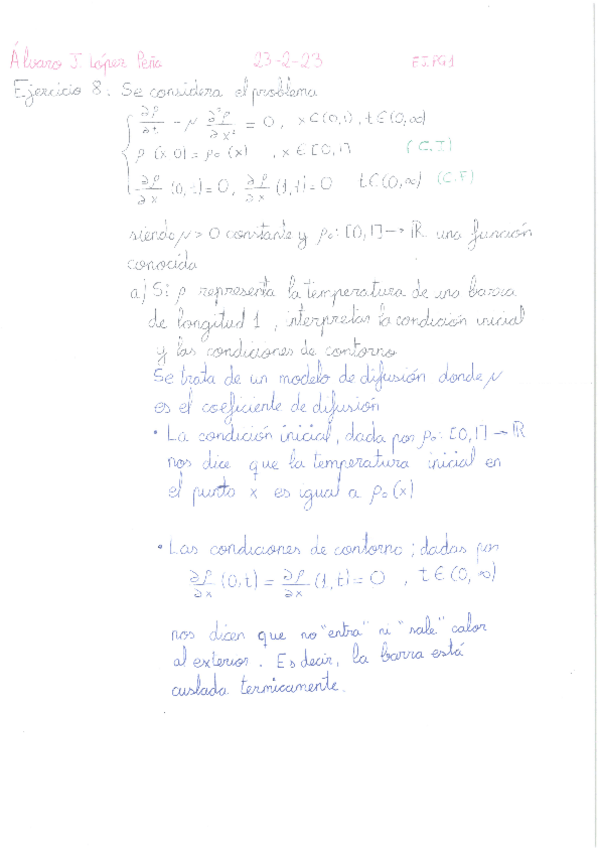 Álvaro J. López Peña 23-2-23 EJ.PG1
Ejercicio 8: Se considera el problema
∂ρ/∂t - μ ∂²ρ/∂x² = 0, x∈(0,1), t∈(0,∞)
ρ(x,0) = ρ₀(x), x∈[0,1] (C.I)
∂ρ/∂x (0,t) = 0, ∂ρ/∂x (1,t) = 0 t∈(0,∞) (C.F)
siendo μ > 0 constante y ρ₀: [0,1] → ℝ una función
conocida
a) Si ρ representa la temperatura de una barra
de longitud 1, interpretar la condición inicial
y las condiciones de contorno
Se trata de un modelo de difusión donde μ
es el coeficiente de difusión
• La condición inicial, dada por ρ₀: [0,1] → ℝ
nos dice que la temperatura inicial en
el punto x es igual a ρ₀(x)
• Las condiciones de contorno; dadas por
∂ρ/∂x (0,t) = ∂ρ/∂x (1,t) = 0, t∈(0,∞)
nos dicen que no "entra" ni "sale" calor
al exterior. Es decir, la barra está
aislada termicamente.